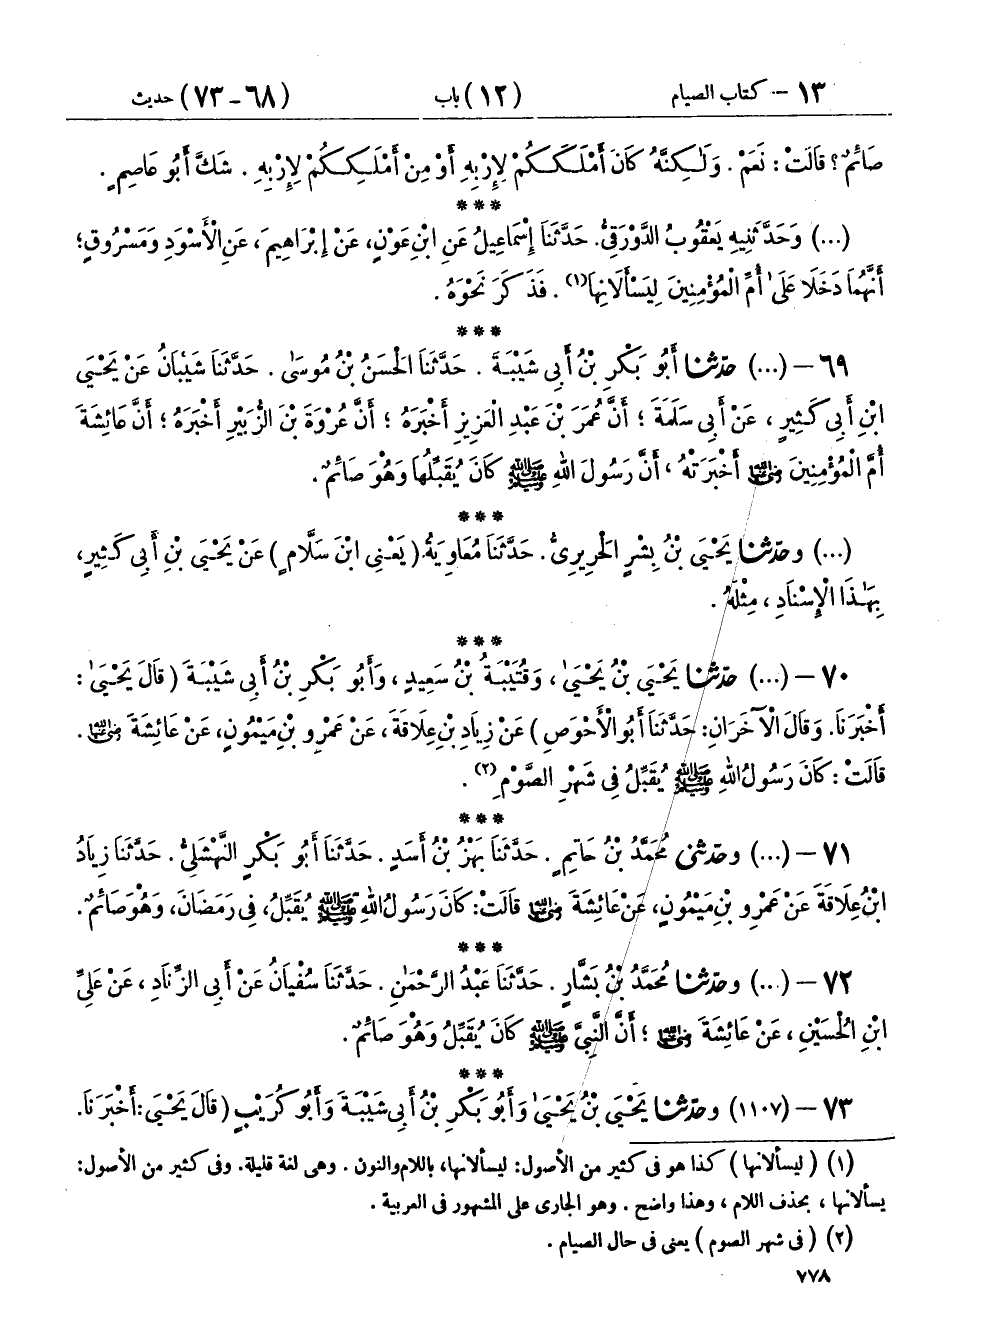 ١٣ – كتاب الصيام (١٢) باب (٦٨ - ٧٣) حديث
صَائِمٌ؟ قَالَتْ: نَعَمْ. وَلَٰكِنَّهُ كَانَ أَمْلَكَكُمْ لِإِرْبِهِ أَوْ مِنْ أَمْلَكِكُمْ لِإِرْبِهِ. شَكَّ أَبُو عَاصِمٍ.
***
(...) وَحَدَّثَنِيهِ يَعْقُوبُ الدَّوْرَقِيُّ. حَدَّثَنَا إِسْمَاعِيلُ عَنِ ابْنِ عَوْنٍ، عَنْ إِبْرَاهِيمَ، عَنِ الْأَسْوَدِ وَمَسْرُوقٍ؛
أَنَّهُمَا دَخَلَا عَلَىٰ أُمِّ الْمُؤْمِنِينَ لِيَسْأَلَانِهَا(١). فَذَكَرَ نَحْوَهُ.
***
٦٩ – (...) حدّثنا أَبُو بَكْرِ بْنُ أَبِي شَيْبَةَ. حَدَّثَنَا الْحَسَنُ بْنُ مُوسَىٰ. حَدَّثَنَا شَيْبَانُ عَنْ يَحْيَى
ابْنِ أَبِي كَثِيرٍ، عَنْ أَبِي سَلَمَةَ؛ أَنَّ عُمَرَ بْنَ عَبْدِ الْعَزِيزِ أَخْبَرَهُ؛ أَنَّ عُرْوَةَ بْنَ الزُّبَيْرِ أَخْبَرَهُ؛ أَنَّ عَائِشَةَ
أُمَّ الْمُؤْمِنِينَ رضي الله عنها أَخْبَرَتْهُ؛ أَنَّ رَسُولَ اللهِ ﷺ كَانَ يُقَبِّلُهَا وَهُوَ صَائِمٌ.
***
(...) وحدّثنا يَحْيَى بْنُ بِشْرٍ الْحَرِيرِيُّ. حَدَّثَنَا مُعَاوِيَةُ (يَعْنِي ابْنَ سَلَّامٍ) عَنْ يَحْيَى بْنِ أَبِي كَثِيرٍ،
بِهَٰذَا الْإِسْنَادِ، مِثْلَهُ.
***
٧٠ – (...) حدّثنا يَحْيَى بْنُ يَحْيَىٰ، وَقُتَيْبَةُ بْنُ سَعِيدٍ، وَأَبُو بَكْرِ بْنُ أَبِي شَيْبَةَ (قَالَ يَحْيَىٰ:
أَخْبَرَنَا. وَقَالَ الْآخَرَانِ: حَدَّثَنَا أَبُو الْأَحْوَصِ) عَنْ زِيَادِ بْنِ عِلَاقَةَ، عَنْ عَمْرِو بْنِ مَيْمُونٍ، عَنْ عَائِشَةَ رضي الله عنها.
قَالَتْ: كَانَ رَسُولُ اللهِ ﷺ يُقَبِّلُ فِي شَهْرِ الصَّوْمِ(٢).
***
٧١ – (...) وحدّثني مُحَمَّدُ بْنُ حَاتِمٍ. حَدَّثَنَا بَهْزُ بْنُ أَسَدٍ. حَدَّثَنَا أَبُو بَكْرٍ النَّهْشَلِيُّ. حَدَّثَنَا زِيَادُ
ابْنُ عِلَاقَةَ عَنْ عَمْرِو بْنِ مَيْمُونٍ، عَنْ عَائِشَةَ رضي الله عنها قَالَتْ: كَانَ رَسُولُ اللهِ ﷺ يُقَبِّلُ، فِي رَمَضَانَ، وَهُوَ صَائِمٌ.
***
٧٢ – (...) وحدّثنا مُحَمَّدُ بْنُ بَشَّارٍ. حَدَّثَنَا عَبْدُ الرَّحْمَٰنِ. حَدَّثَنَا سُفْيَانُ عَنْ أَبِي الزِّنَادِ، عَنْ عَلِيِّ
ابْنِ الْحُسَيْنِ، عَنْ عَائِشَةَ رضي الله عنها؛ أَنَّ النَّبِيَّ ﷺ كَانَ يُقَبِّلُ وَهُوَ صَائِمٌ.
***
٧٣ – (١١٠٧) وحدّثنا يَحْيَى بْنُ يَحْيَىٰ وَأَبُو بَكْرِ بْنُ أَبِي شَيْبَةَ وَأَبُو كُرَيْبٍ (قَالَ يَحْيَى: أَخْبَرَنَا.
(١) (ليسألانها) كذا هو فى كثير من الأصول: ليسألانها، باللام والنون. وهى لغة قليلة. وفى كثير من الأصول:
يسألانها، بحذف اللام، وهذا واضح. وهو الجارى على المشهور فى العربية.
(٢) (فى شهر الصوم) يعنى فى حال الصيام.
٧٧٨